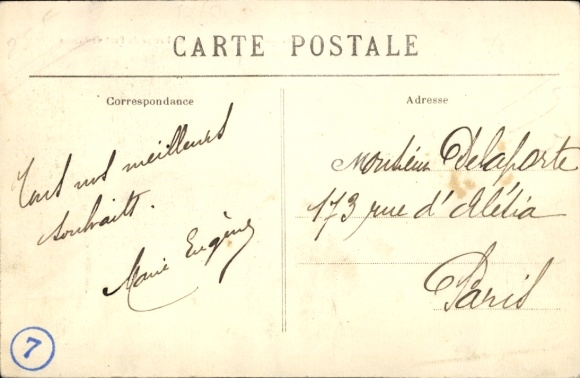 CARTE POSTALE
Correspondance
Adresse
Tous nos meilleurs
souhaits.
Marie Eugène
Monsieur Délaporte
173 rue d'Alésia
Paris
7